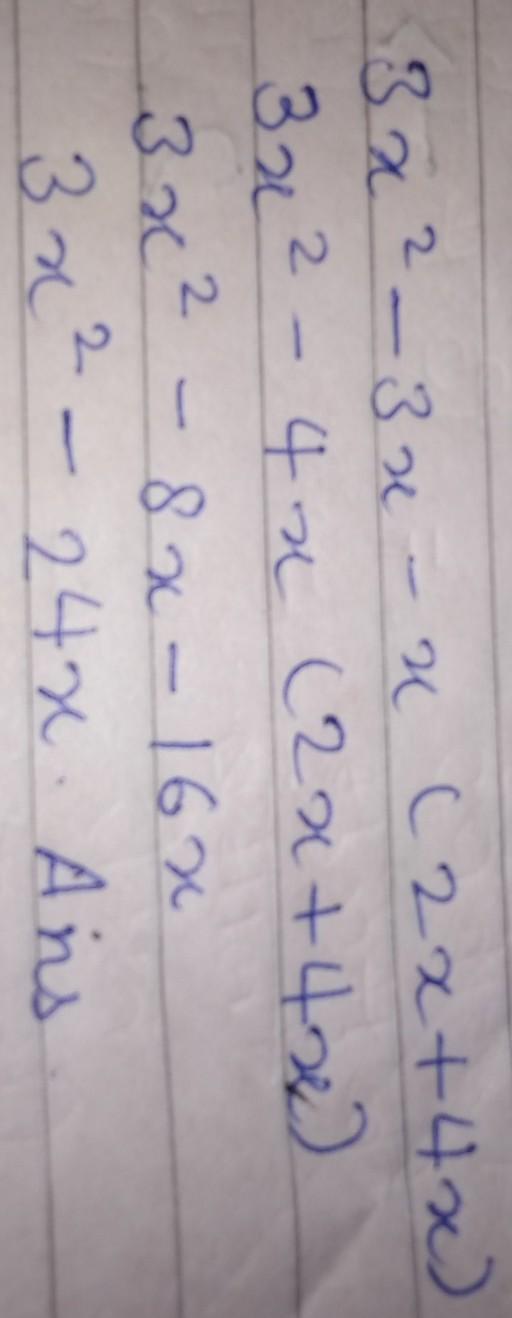 3x² - 3x - x (2x + 4x)
3x² - 4x (2x + 4x)
3x² - 8x - 16x
3x² - 24x. Ans